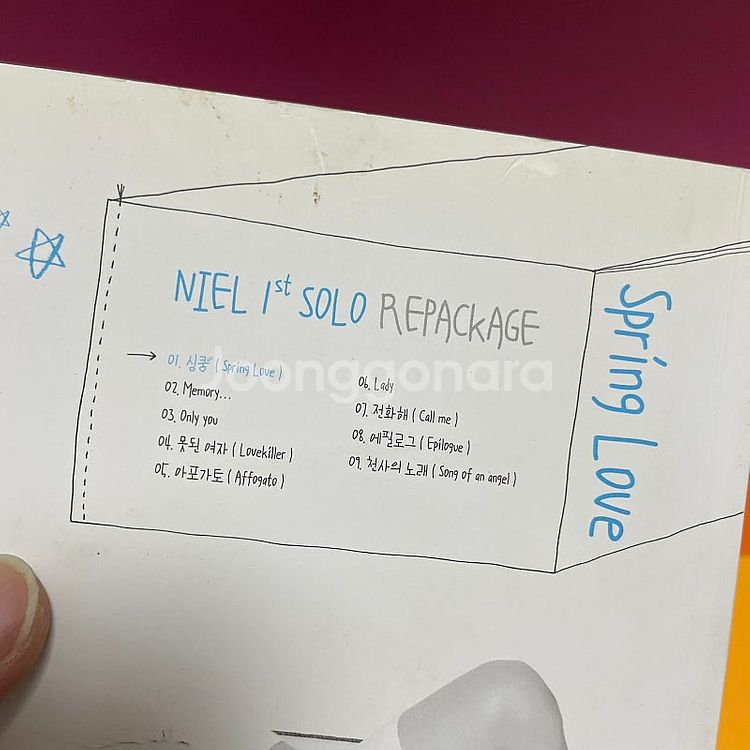 NIEL 1st SOLO REPACKAGE
01. 심쿵 ( Spring Love )
02. Memory...
03. Only you
04. 못된 여자 ( Lovekiller )
05. 아포가토 ( Affogato )
06. Lady
07. 전화해 ( Call me )
08. 에필로그 ( Epilogue )
09. 천사의 노래 ( Song of an angel )
Spring Love
Joonggonara